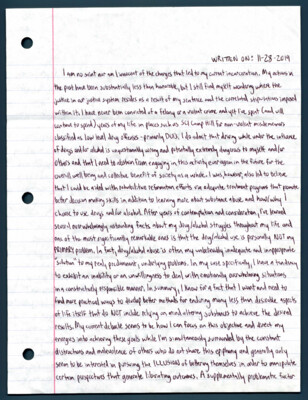 WRITTEN ON: 11-28-2019
I am no saint nor am I innocent of the charges that led to my current incarceration. My actions in
the past have been substantively less than honorable, but I still find myself wondering where the
justice in our justice system resides as a result of my sentence and the corrected stipulations imposed
within it. I have never been convicted of a felony or a violent crime and yet I've spent (and will
continue to spend) years of my life in places such as SCI Camp Hill for non-violent misdemeanors
classified as low level drug offenses - primarily DUI's. I do admit that driving while under the influence
of drugs and/or alcohol is unquestionably wrong and potentially extremely dangerous to myself and/or
others and that I need to abstain from engaging in this activity evermore in the future for the
overall well being and collective benefit of society as a whole. I was however, also led to believe
that I would be aided with rehabilitative reformation efforts via adequate treatment programs that promote
better decision making skills in addition to learning more about substance abuse, and how/why I
choose to use drugs and/or alcohol. After years of contemplation and consideration, I've learned
several overwhelmingly astounding facts about my drug/alcohol struggles throughout my life and
one of the most significantly remarkable ones is that the drug/alcohol use is personally NOT my
PRIMARY problem. In fact, drug/alcohol abuse is often my undesirably inadequate and inappropriate
"solution" to my real, predominate, underlying problem. In my case specifically, I have a tendency
to exhibit an inability or an unwillingness to deal with emotionally overwhelming situations
in a constructively responsible manner. In summary, I know for a fact that I want and need to
find more practical ways to develop better methods for enduring many less than desirable aspects
of life itself that do NOT include relying on mind altering substances to achieve the desired
results. My current debate seems to be how I can focus on this objective and divert my
energies into achieving these goals while I'm simultaneously surrounded by the constant
distractions and malevolence of others who do not share this epiphany and generally only
seem to be interested in pursuing the ILLUSIONS of bettering themselves in order to manipulate
certain perspectives that generate liberating outcomes. A supplementally problematic factor